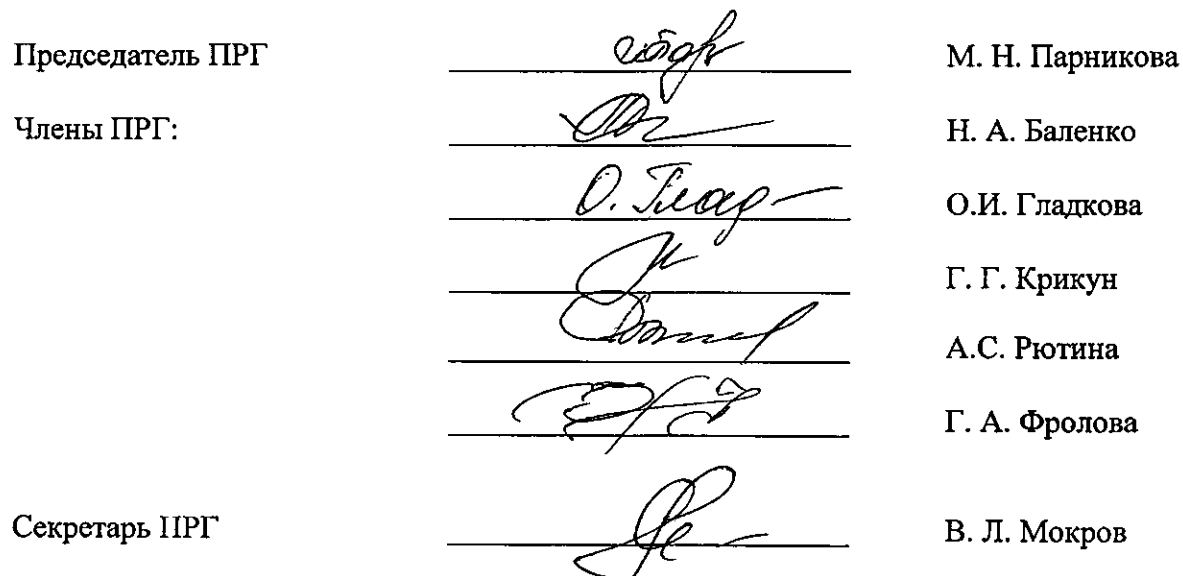 Председатель ПРГ М. Н. Парникова
Члены ПРГ: Н. А. Баленко
О. Глад О.И. Гладкова
Г. Г. Крикун
А.С. Рютина
Г. А. Фролова
Секретарь ПРГ В. Л. Мокров